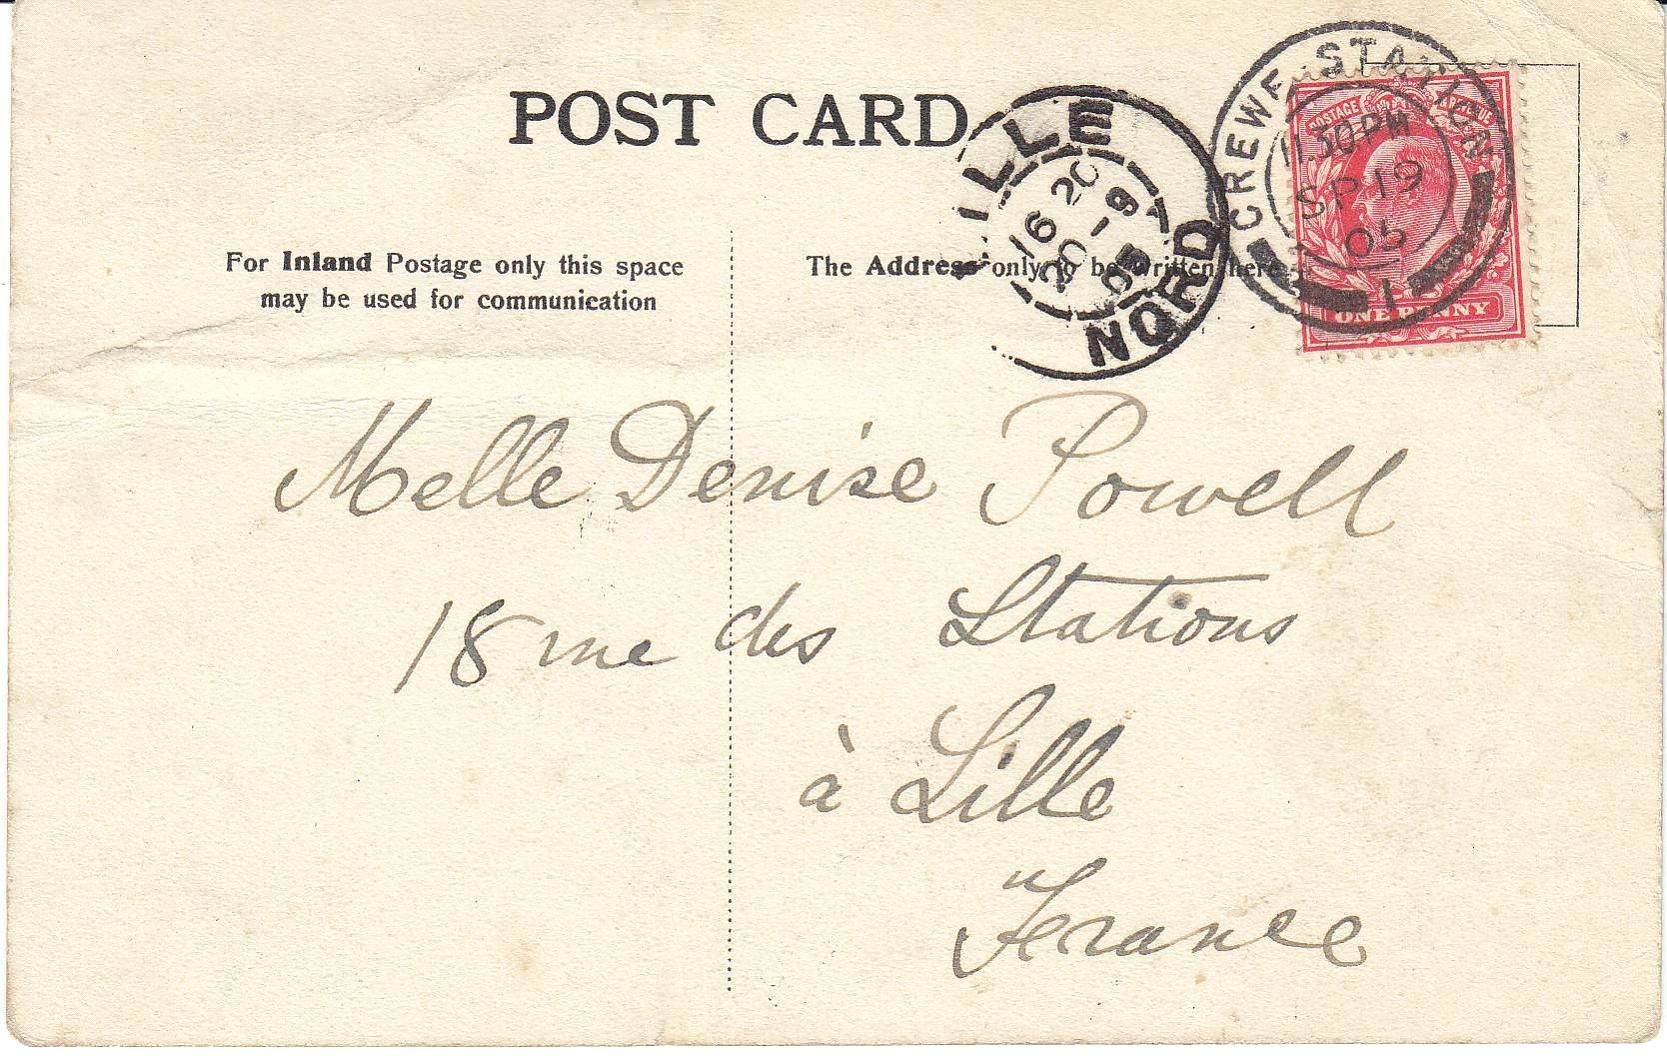 POST CARD
For Inland Postage only this space
may be used for communication
The Address only to be written here
LILLE
16 20
20 - 9
05
NORD
CREWE STATION
11.30 PM
SP 19
05
1
POSTAGE REVENUE
ONE PENNY
Melle Denise Powell
18 rue des Stations
à Lille
France